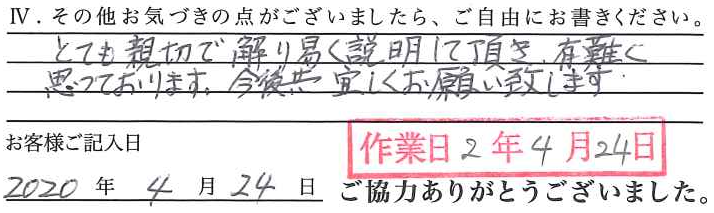 Ⅳ．その他お気づきの点がございましたら、ご自由にお書きください。
とても親切で解り易く説明して頂き、有難く
思っております。今後共宜しくお願い致します
お客様ご記入日
作業日2年4月24日
2020年4月24日
ご協力ありがとうございました。